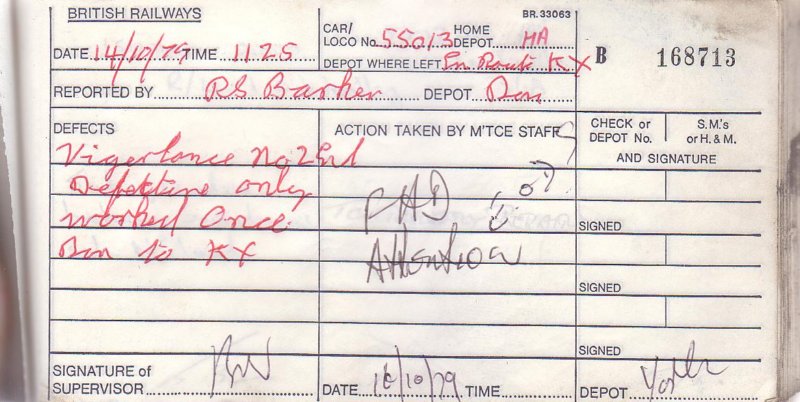 BRITISH RAILWAYS
BR.33063
DATE 14/10/79 TIME 1125
CAR/ LOCO No. 55013 HOME DEPOT HA
DEPOT WHERE LEFT En Route KX
B 168713
REPORTED BY R S Barker DEPOT Don
DEFECTS
ACTION TAKEN BY M'TCE STAFF
CHECK or DEPOT No.
S.M.'s or H. & M.
AND SIGNATURE
Vigerlance No 2 End
Defektive only
worked Once.
Don to KX
Attention
SIGNED
SIGNED
SIGNED
SIGNATURE OF SUPERVISOR
DATE 16/10/79 TIME
DEPOT York